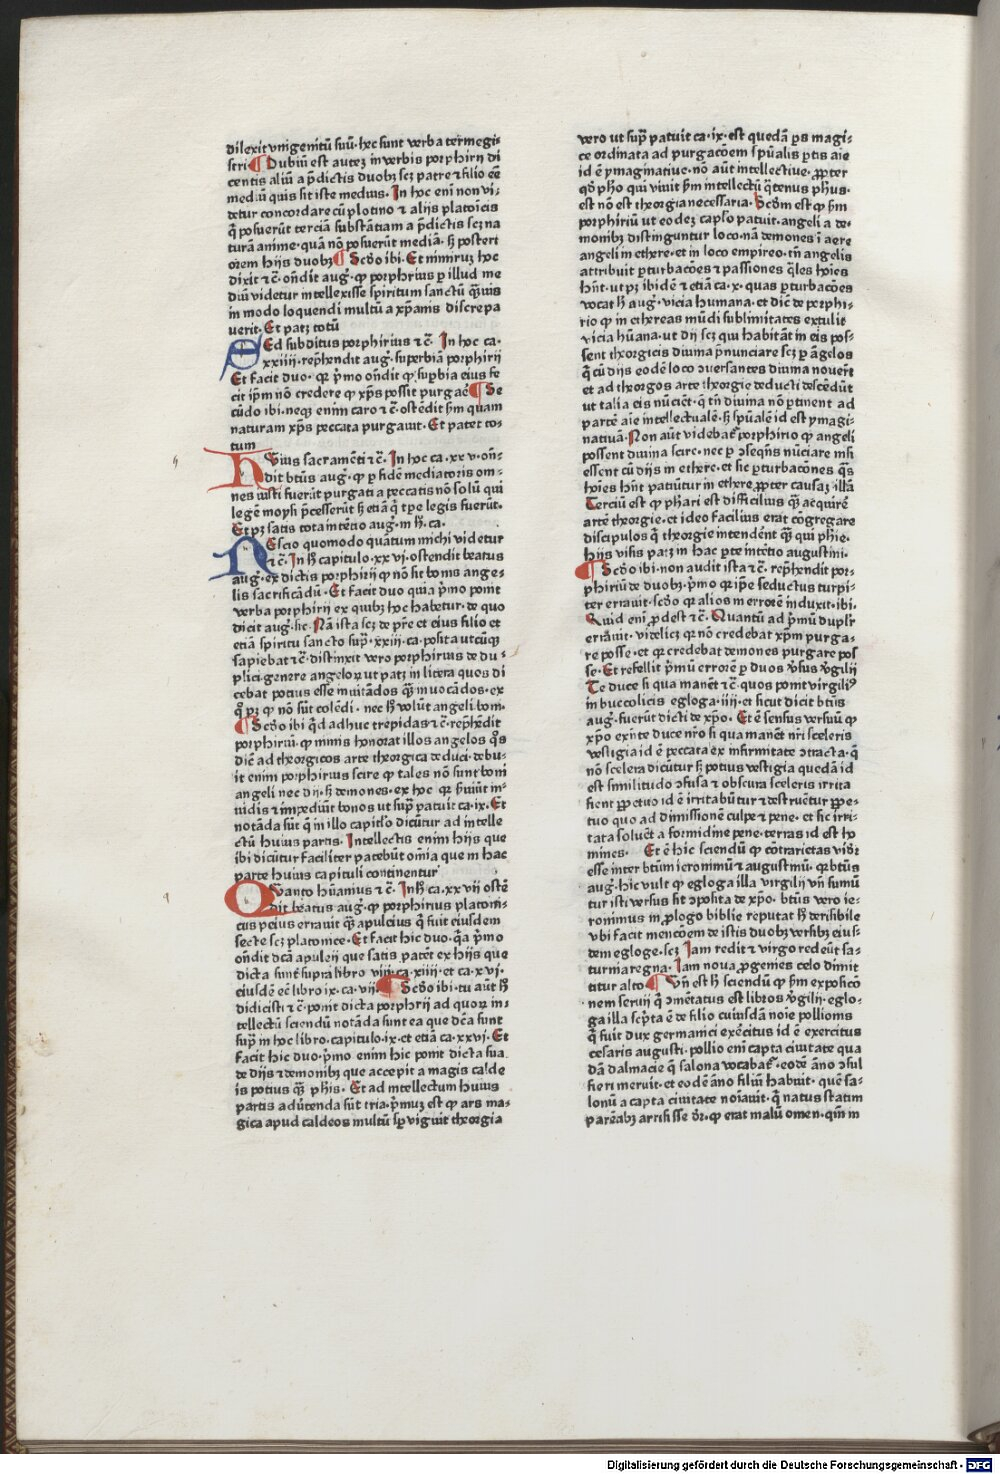 dilexit vnigenitū suū· hec sunt verba termegi-
stri ¶ Dubiū est autez in verbis porphirij di
centis aliū a p̄dictis duobꝫ scꝫ patre ⁊ filio eē
mediū quis sit iste medius· In hoc eni non vi-
detur concordare cū plotino ⁊ alijs platoīcis
q̄ posuerūt terciā substātiam a p̄dictis scꝫ na
turā anime· quā nō posuerūt mediā· sꝫ posteri
orem hijs duobꝫ ¶ Scd̄o ibi· Et nimiruꝫ hoc
dixit ⁊c̄· ondit augꝯ· ꝙ porphirius ꝑ illud me
diū videtur intellexisse spiritum sanctū q̄uis
in modo loquendi multū a xp̄anis discrepa
uerit· Et patꝫ totū
SEd subditus porphirius ⁊c̄· In hoc ca·
xxiiij· rep̄hendit augꝯ· superbiā porphirij
Et facit duo· qꝛ p̄mo ondit ꝙ suꝑbia eius fe
cit ip̄m nō credere ꝙ xp̄s possit purgaē ¶ Se
cūdo ibi· neqꝫ enim caro ⁊c̄· ostēdit ẜm quam
naturam xp̄s peccata purgauit· Et patet to-
tum
HVius sacramēti ⁊c̄· In hoc ca· xxv· on-
dit btūs augꝯ· ꝙ ꝑ fidē mediatoris om-
nes iusti fuerūt purgati a peccatis nō solū qui
legē moysi p̄cesserūt sꝫ etiā q̄ tp̄e legis fuerūt·
Et pꝫ satis tota intētio augꝯ· in h̄ ca·
NEscio quomodo quātum michi videtur
⁊c̄· In h̄ capitulo· xxvj· ostendit beatus
augꝯ· ex dictis porphirij ꝙ nō sit bonis ange-
lis sacrificādū· Et facit duo quia p̄mo ponit
verba porphirij ex quibꝫ hoc habetur· de quo
dicit augꝯ· sic· Nā ista scꝫ de pr̄e et eius filio et
etiā spiritu sancto sup̄· xxiij· ca· posita utcūqꝫ
sapiebat ⁊c̄· distinxit vero porphirius de du-
plici genere angeloꝝ ut patꝫ in litera quos di
cebat potius esse imitādos q̄ inuocādos· ex
q̊ pꝫ ꝙ nō sūt colēdi· nec h̄ volūt angeli boni·
¶ Scd̄o ibi q̄d adhuc trepidas ⁊c̄· rep̄hēdit
porphiriū· ꝙ nimis honorat illos angelos q̊s
dic̄ ad theorgicos arte theorgica deduci· debu-
it enim porphirius scire ꝙ tales nō sunt boni
angeli nec dij· sꝫ demones· ex hoc qꝛ sūt in-
uidis ⁊ impediūt bonos ut sup̄ patuit ca· ix· Et
notāda sūt q̄ in illo capitl̄o dicūtur ad intelle
ctū huius partis· Intellectis enim hijs que
ibi dicūtur faciliter patebūt oīnia que in hac
parte huius capituli continentur
QVanto hūanius ⁊c̄· In h̄ ca· xxvij ostē
dit beatus augꝯ· ꝙ porphirius platoni-
cus peius errauit q̄ apuleius q̄ fuit eiusdem
secte scꝫ platonice· Et facit hic duo· q̄a p̄mo
ondit dcā apuleij que satis patēt ex hijs que
dicta sunt supra libro viij· ca· xiiij· et ca· xvj·
eiusdē et libro ix· ca· vij· ¶ Scd̄o ibi· tu aūt h̄
didicisti ⁊c̄· ponit dicta porphirij ad quoꝝ in-
tellectū sciendū notāda sunt ea que dcā sunt
sup̄ in hoc libro· capitulo· ix· et etiā ca· xxvj· Et
facit hic duo· p̄mo enim hic ponit dicta sua
de dijs ⁊ demonibꝫ que accepit a magis calde
is potius q̄ phis· Et ad intellectum huius
partis aduertenda sūt tria· p̄muꝫ est ꝙ ars ma-
gica apud caldeos multū sꝑ viguit theorgia
vero ut sup̄ patuit ca· ix· est quedā ꝑs magi-
ce ordinata ad purgacōem sp̄ualis ꝑtis aīe
id ē ymaginatiue· nō aūt intellectiue· ꝓpter
qd̄ pho qui viuit ẜm intellectū q̄tenus phus·
est nō est theorgia necessaria· Scd̄m est ꝙ ẜm
porphiriū ut eodeꝫ capl̄o patuit· angeli a de-
monibꝫ distinguntur loco· nā demones ī aere
angeli in ethere· et in loco empireo· tn̄ angelis
attribuit ꝑturbacōes ⁊ passiones q̄les hoīes
hn̄t· ut pꝫ ibidē ⁊ etiā ca· x· quas ꝑturbacōes
vocat h̄ augꝯ· vicia humana· et dic̄ de porphi-
rio ꝙ in ethereas mūdi sublimitates extulit
vicia hūana· ut dij scꝫ qui habitāt in eis pos-
sent theorgicis diuina p̄nunciare scꝫ ꝑ āgelos
q̄ cū dijs eodē loco ꝯuersantes diuina nouerūt
et ad theorgos arte theorgie deducti descēdūt
ut talia eis nūciēt· q̄ tn̄ diuina nō ꝑtinent ad
partē aīe intellectualē· sꝫ sp̄ualē id est ymagi-
natiuā· Non aūt videbat͛ porphirio ꝙ angeli
possent diuina scire· nec ꝑ ꝯseq̄ns nūciare nisi
essent cū dijs in ethere· et sic ꝑturbacōnes q̄s
hoīes hn̄t patiūtur in ethere ꝓpter causaꝫ illā
Terciū est ꝙ phari est difficilius q̄ acquirē
artē theorgie· et ideo facilius erat cōgregare
discipulos q̄ theorgie intendēnt q̄ qui phie·
Hijs visis patꝫ in hac ꝑte intētio augustini·
¶ Scd̄o ibi· non audit ista ⁊c̄· rep̄hendit por-
phiriū de duobꝫ· p̄mo qꝛ ip̄e seductus turpi-
ter errauit· scd̄o qꝛ alios in errorē induxit· ibi·
Quid eni ꝓdest ⁊c̄· Quantū ad p̄mū duplr̄
errauit· videlicꝫ qꝛ nō credebat xp̄m purga-
re posse· et qꝛ credebat demones purgare pos
se· Et refellit p̄mū errorē ꝑ duos v̄sus v̄gilij
Te duce si qua manēt ⁊c̄· quos ponit virgiliꝰ
in buccolicis egloga· iiij· et sicut dicit btūs
augꝯ· fuerūt dicti de xp̄o· Et ē sensus versuū ꝙ
xp̄o exn̄te duce nr̄o si qua manēt nr̄i sceleris
vestigia id ē peccata ex infirmitate ꝯtracta· q̄
nō scelera dicūtur sꝫ potius vestigia quedā id
est similitudo ꝯfusa ⁊ obscura sceleris irrita
fient ꝑpetuo id ē irritabūtur ⁊ destruētur ꝑpe-
tuo quo ad dimissionē culpe ⁊ pene· et sic irri-
tata soluēt a formidine pene· terras id est ho
mines· Et ē hic sciendū ꝙ cōtrarietas vid̄r
esse inter btūm ieronimū ⁊ augustinū· qꝛ btūs
augꝯ· hic vult ꝙ egloga illa virgilij vn̄ sumū
tur isti versus sit ꝯposita de xp̄o· btūs vero ie-
ronimus in ꝓlogo biblie reputat h̄ derisibile
vbi facit mencōem de istis duobꝫ versibꝫ eius-
dem egloge· scꝫ Iam redit ⁊ virgo redeūt sa-
turnia regna· Iam noua ꝓgenies celo dimit
titur alto ¶ Vn̄ est h̄ sciendū ꝙ ẜm exposicō
nem seruij q̄ ꝯmētatus est libros v̄gilij· eglo-
ga illa scp̄ta ē de filio cuiusdā noīe pollionis
q̄ fuit dux germanici exērcitus id ē exercitus
cesaris augusti· pollio eni capta ciuitate qua
dā dalmacie q̄ salona vocabat͛· eodē āno ꝯsul
fieri meruit· et eodē āno filiū habuit· quē sa-
lonū a capta ciuitate noīauit· q̄ natus statim
parētibꝫ arrisisse d̄r· ꝙ erat malū omen· qm̄ in
Digitalisierung gefördert durch die Deutsche Forschungsgemeinschaft - DFG